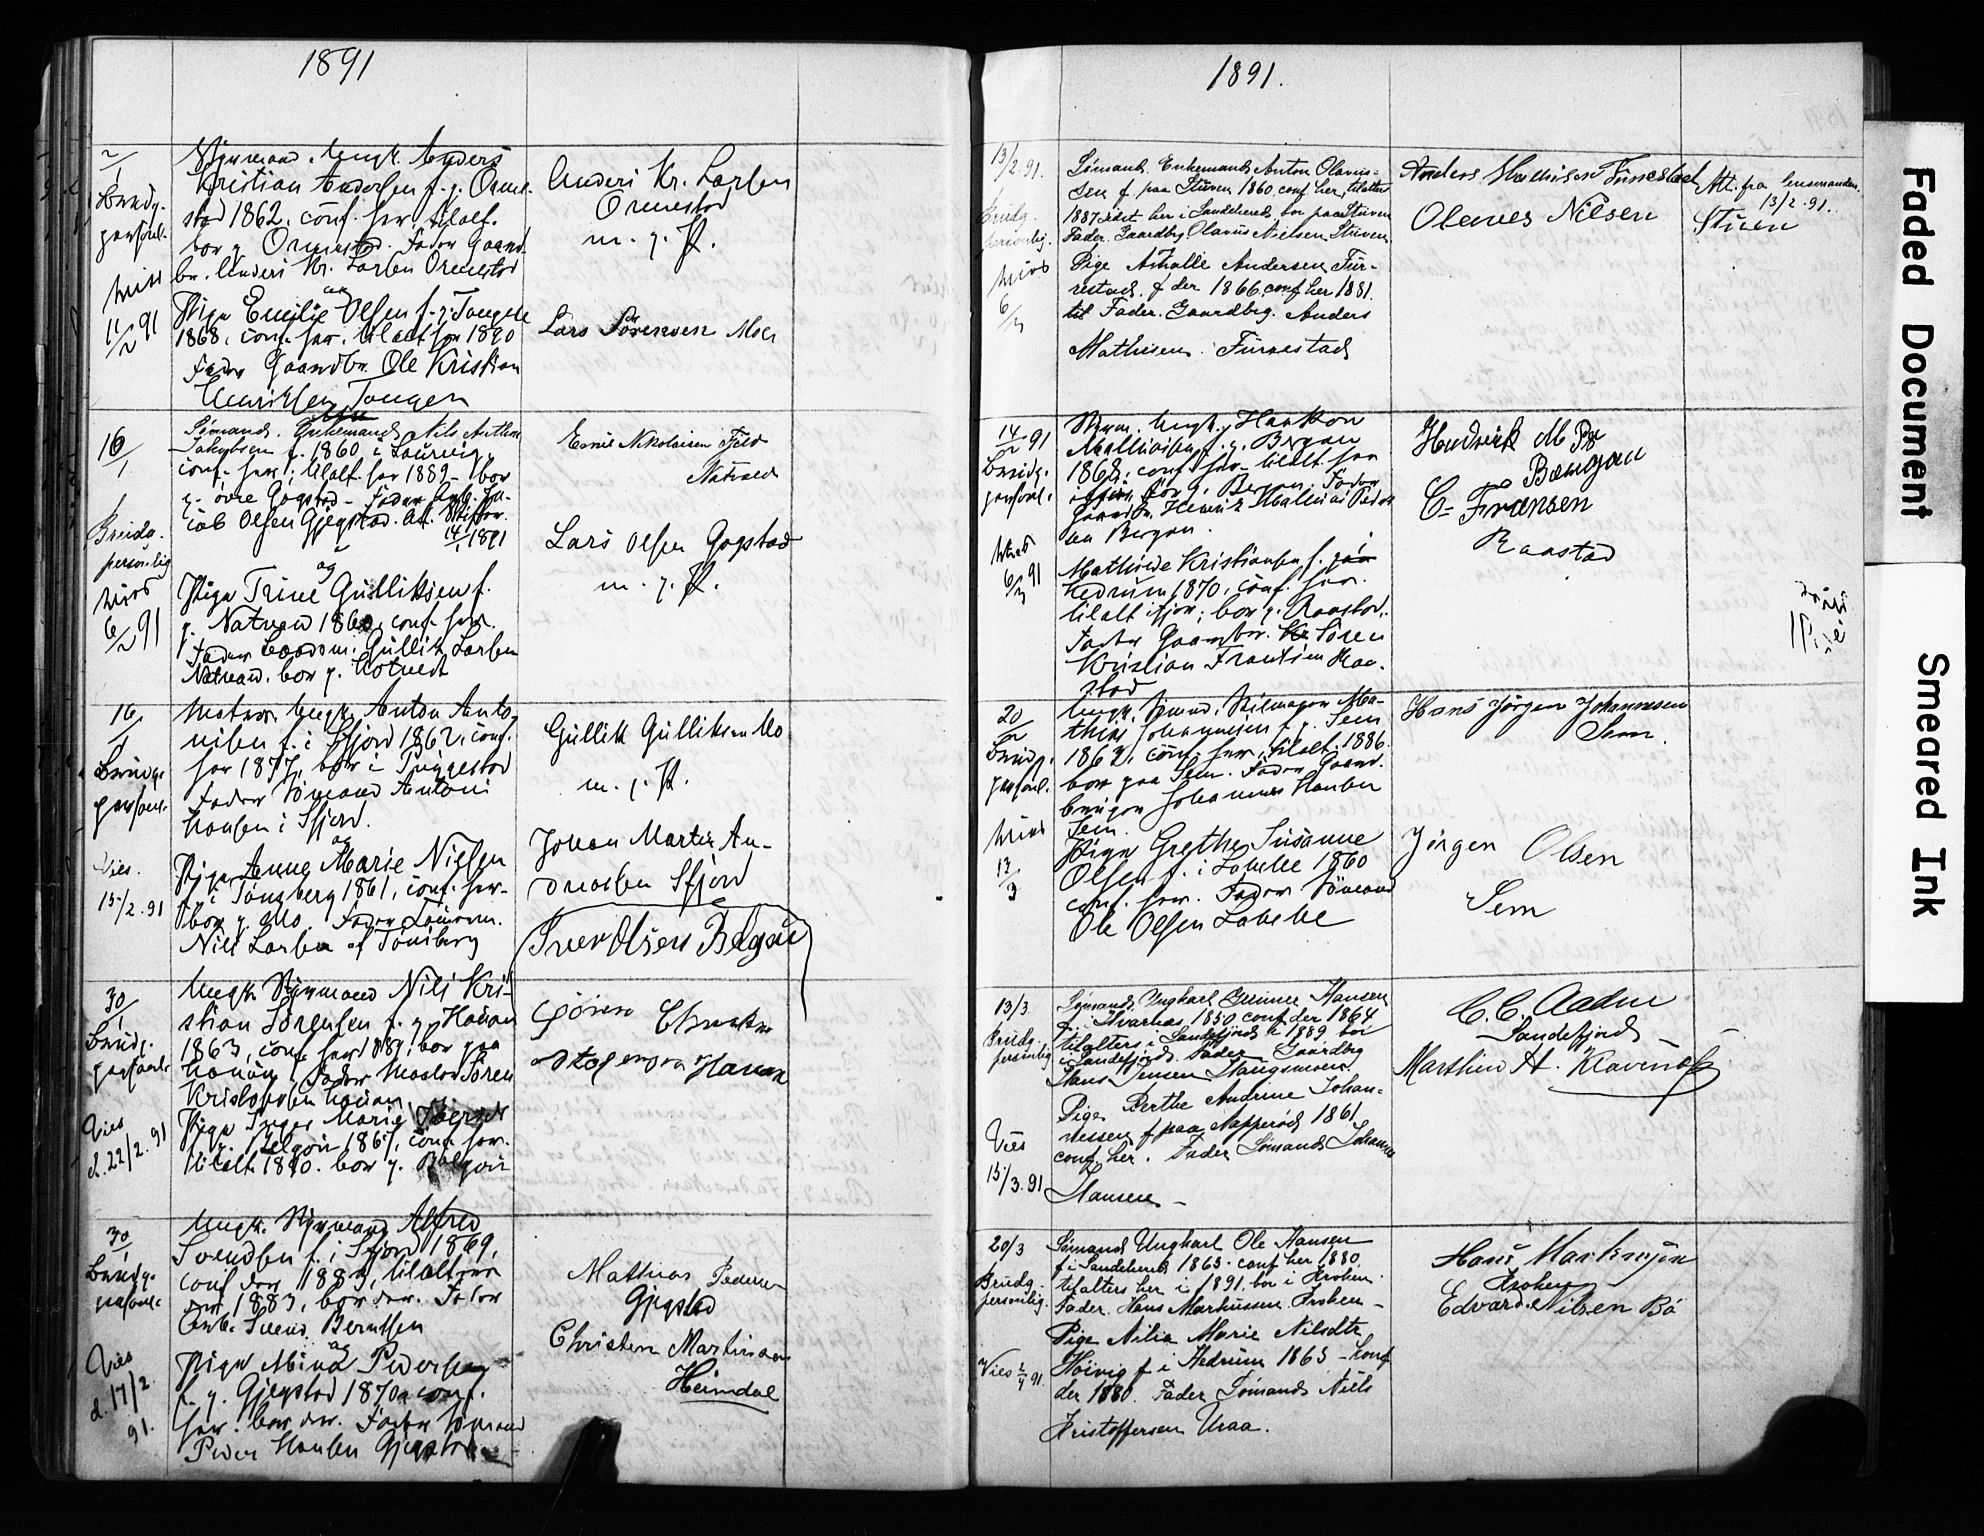 1891
2/1
Brudg.
personl.
Anders
Kristian Andersen f. p. Orme-
stad 1862, conf. her, tilalt.
bor p. Ormestad. Fader Gaard-
br. Anders Kr. Larsen Ormestad
og
Pige Emilie Olsen f. p. Tangen
1868, conf. her. tilalt her 1890
Fader Gaardbr. Ole Kristian
Henriksen Tangen
viet
11/2 91
Anders Kr. Larsen
Ormestad
m. p. P.
Lars Sørensen Moe
16/1
Brudg.
personlig
viet
6/2 91
Sømand. Enkemand Nils Anthon
Jakobsen f. 1860 i
conf. her; tilalt. her 1889 - bor
p. øvre Gogstad - Fader
cob Olsen Gjegstad. Att. Skifter.
14/1 1891
og
Pige Trine Gulliksen f.
p. Natvad 1860, conf. her.
Fader Gullik Larsen
Natvad, bor p.
Emil Nikolaisen Fjeld
Natvad
Lars Olsen Gogstad
m. p. P.
16/1
Brudg.
personl.
Vies.
15/2.91
Matros Ungk. Anton Anto-
nisen f. i Sfjord 1862, conf.
her 1877, bor i
Fader Sømand Antoni
Hansen i Sfjord.
og
Pige Anne Marie Nielsen
f. i Tønsberg 1861, conf. her.
bor p. Mo. Fader Tømerm.
Nils Larsen af Tønsberg
Gullik Gulliksen Mo
m. p. P.
Johan Martin An-
dreasen Sfjord
Iver Olsen Bøgau
30/1
Brudg.
personl.
Vies
d. 22/2.91
Ungk. Styrmand Nils Kri-
stian Sørensen f. p. Hauan
1863, conf. her 1881, bor paa
Hauan, Fader Søren
Kristofersen Hauan
Pige Inger Marie
1867, conf. her.
tilalt 1890. bor p.
Søren
Hauan
30/1
Brudg.
personl.
Vies
d. 17/2
91.
Ungk. Styrmand Alfred
Svendsen f. i Sfjord 1869,
conf der 1883, tilalt
1883, bor der. Fader
Arb. Svend Berntsen
og
Pige Mina Pedersen
f. p. Gjegstad 1870 conf.
her. bor der. Fader Sømand
Peder Hansen Gjegstad
Mathias Pedersen
Gjegstad
Christen Martinsen
Heimdal
1891.
13/2.91.
Brudg.
personlig.
viet
6/3
Sømand. Enkemand Anton Olavus-
sen f. paa Stuven 1860, conf her, tilalters
1887 sidst her i Sandeherred, bor paa Stuven
Fader. Gaardbrg. Olavus Nielsen Stuven.
Pige Athalie Andersen Fur-
restad. f der 1866, conf her 1881.
til Fader. Gaardbrg. Anders
Mathisen. Furrestad
Anders Mathisen Furestad
Olaves Nilsen
Att. fra lensmanden.
13/2-91.
Stuen
14/2 91
Brudg.
personl.
viet
6/3 91
Styrm. Ungk. Haakon
Mathisen f. p. Bergan
1868, conf. her. tilalt. her
bor p. Bergan. Fader
Gaardbr. Henrik Mathias
Bergan.
Mathilde Kristiansen f. i
Hedrum 1870, conf. her.
tilalt ifjor; bor p. Raastad.
Fader Gaardbr. Søren
Kristian Frantsen Raa-
stad
Hendrik M
Bærgan
C. Fransen
Raastad
20/2
Brudg.
personl.
viet
13/3
Ungk. Sømand. Ma-
thias Johannesen f. p. Sem
1862, conf. her, tilalt. 1886.
bor paa Sem. Fader Gaard-
bruger Johannes Hansen
Sem.
Pige Grethe Susanne
Olsen f. i Labelle 1860
conf. her. Fader Sømand
Ole Olsen Labelle
Hans Jørgen Johannesen
Sem.
Jørgen Olsen
Sem
13/3
Brudg.
personlig
Vies
15/3.91
Sømand, Ungkarl Gunner Hansen
f. i Hvarnæs 1850, conf der 1864
tilalters i Sandefjord 1889 bor
i Sandefjord. Fader Gaardbrg
Hans Jensen
Pige Berthe Andrine Johan-
nessen f paa Napperød 1861
conf. her. Fader Sømand Johannes
Hansen -
C. C. Aadne
Sandefjord
Marthin H. Klavenes
20/3
Brudg.
personlig.
Vies 2/4 91.
Sømand Ungkarl Ole Hansen
f i Sandeherred 1865. conf her 1880,
tilalters her i 1891. bor i Kroken.
Fader. Hans Markussen Kroken -
Pige Nilia Marie Nilsdtr
Høivig f i Hedrum 1865 - conf
der 1880. Fader Sømand Niels
Kristoffersen Uraa.
Hans Markusen
Kroken
Edvard Nilsen Bø
Faded Document
Smeared Ink